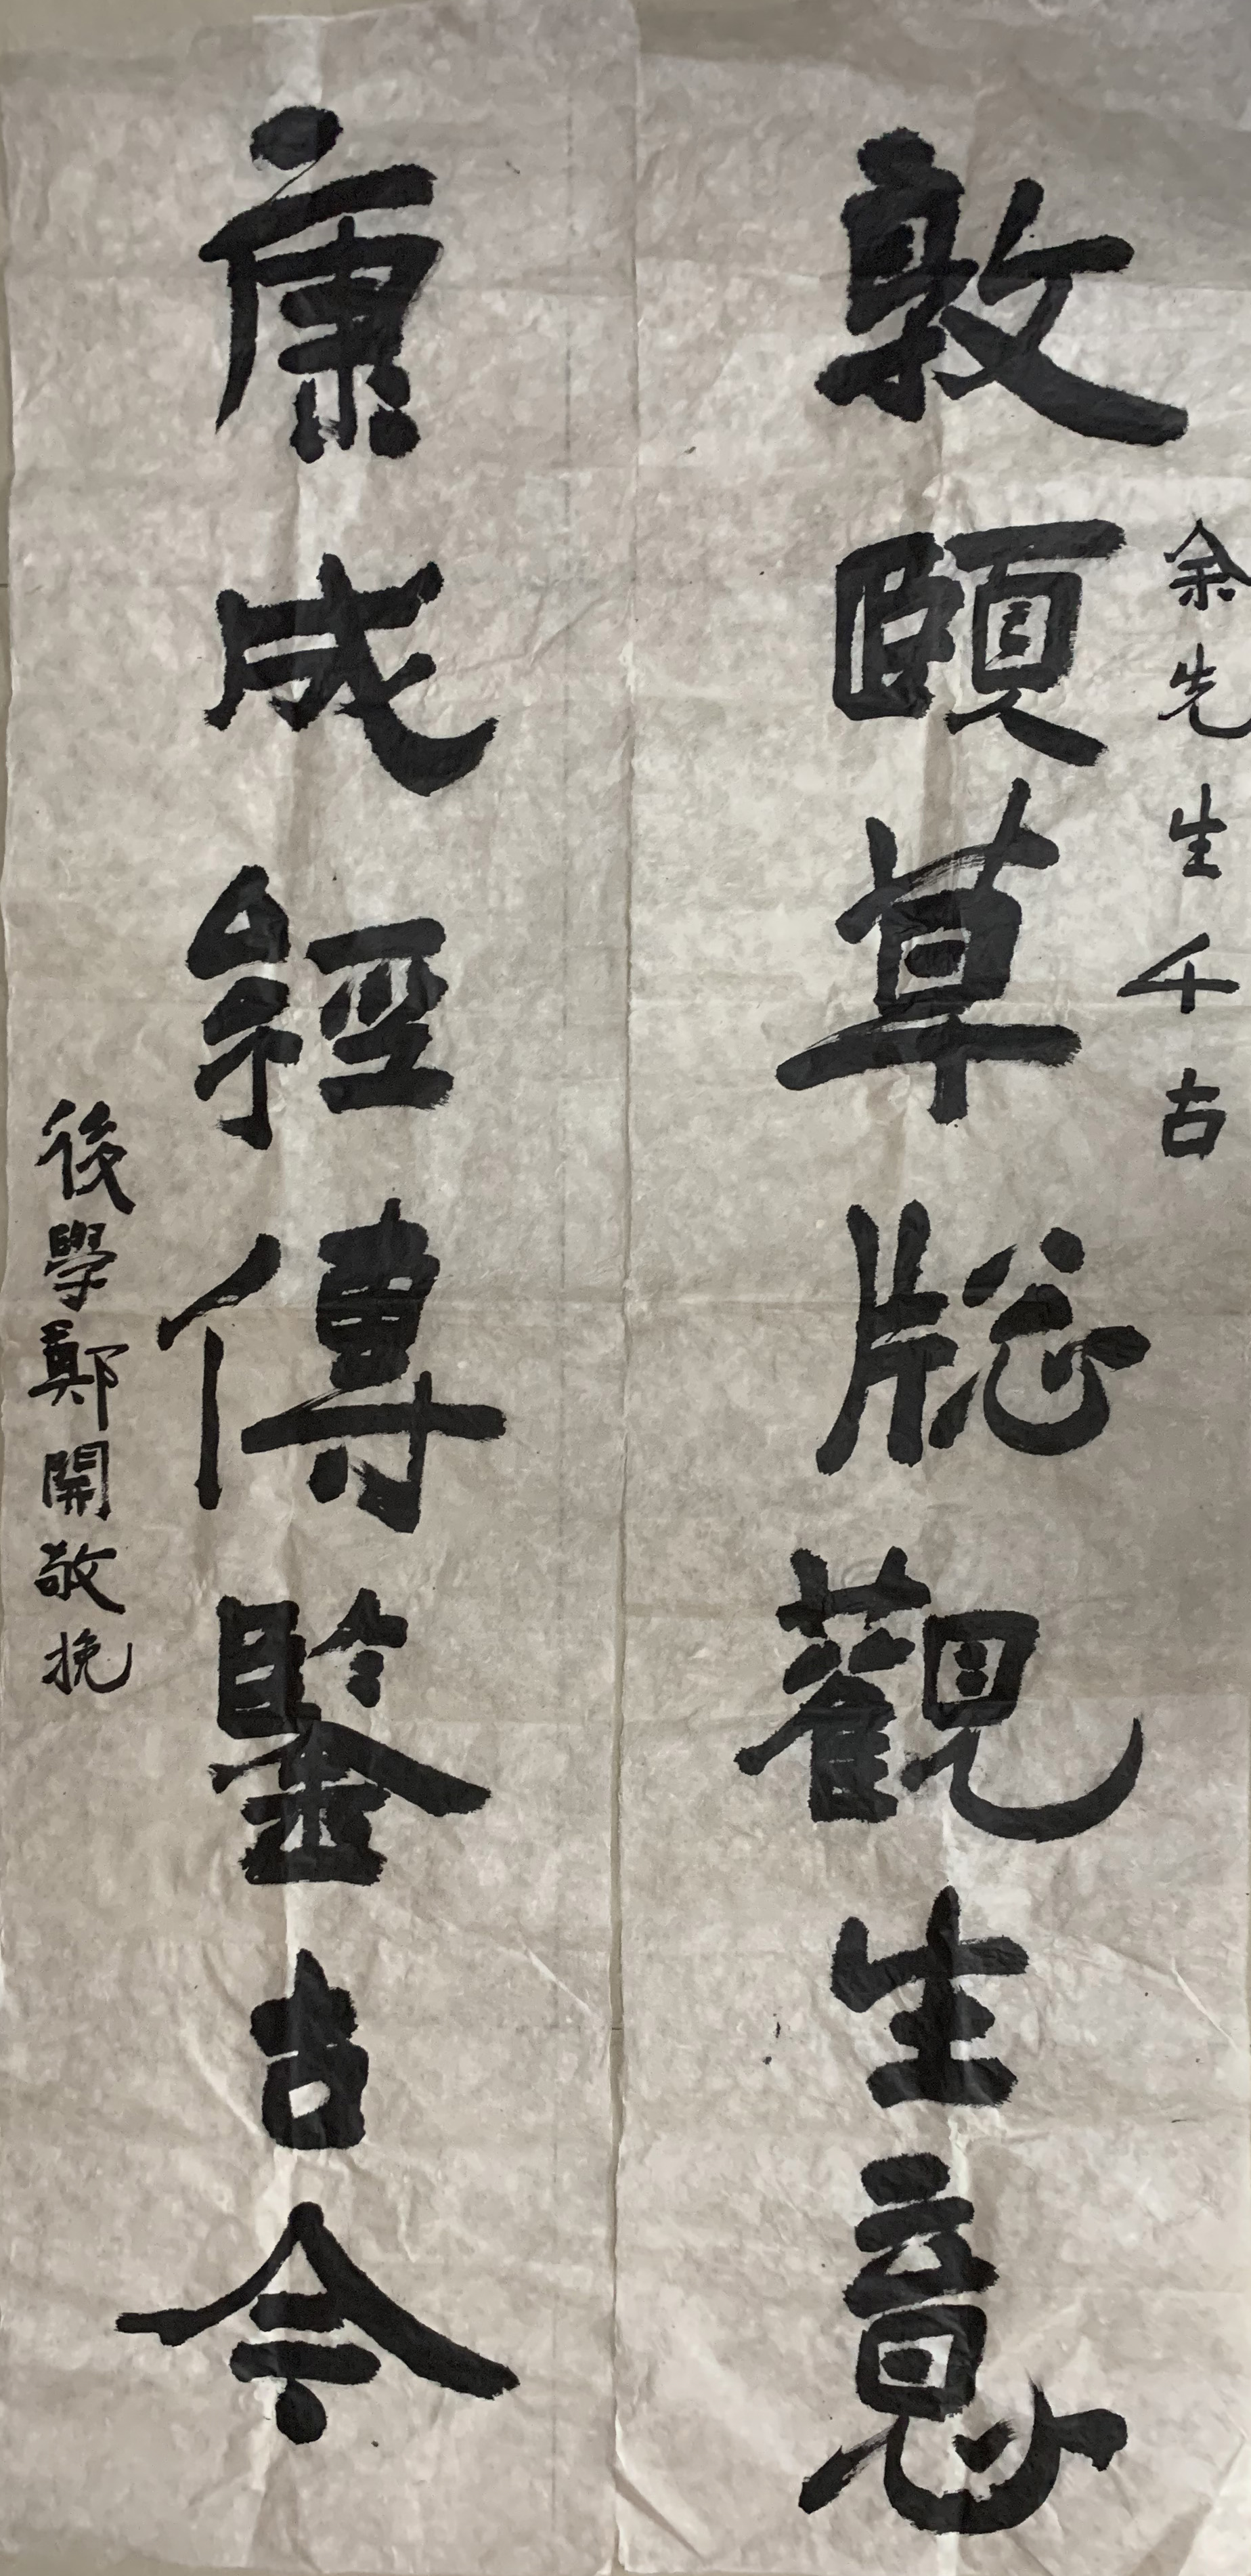 余先生千古
敦頤草牕觀生意
康成經傳鑒古今
後學鄭開敬挽